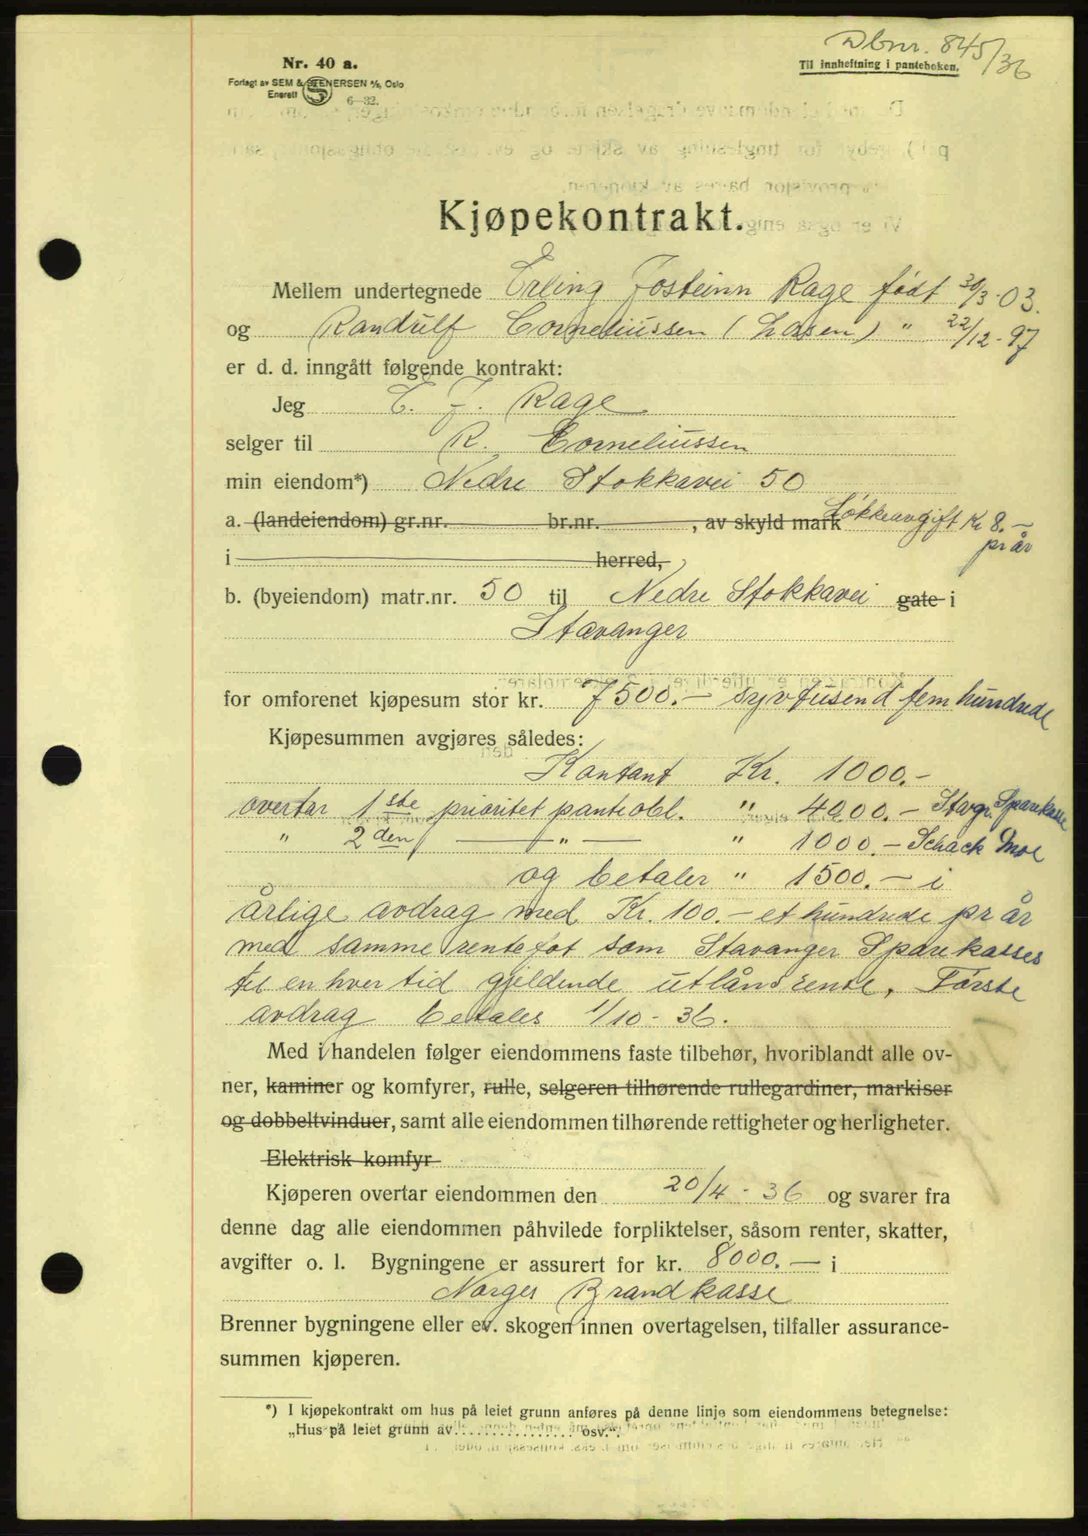 Dbnr. 845/36
Til innheftning i panteboken.
Nr. 40 a.
Forlagt av SEM & STENERSEN A/S, Oslo
Enerett
6-32.
Kjøpekontrakt.
Mellem undertegnede Erling Josteinn Rage født 30/3-03.
og Randulf Corneliussen (Lassen) " 22/12-97
er d. d. inngått følgende kontrakt:
Jeg E. J. Rage
selger til R. Corneliussen
min eiendom*) Nedre Stokkavei 50
a. (landeiendom) gr.nr. br.nr. , av skyld mark Løkkeavgift Kr 8.-
pr år
i herred,
b. (byeiendom) matr.nr. 50 til Nedre Stokkavei gate i
Stavanger
for omforenet kjøpesum stor kr. 7500.- syvtusend fem hundrede
Kjøpesummen avgjøres således:
Kontant Kr. 1000.-
overtar 1ste prioritet panteobl. " 4000.- Stvgr. Sparekasse
" 2den — " — " 1000.- Schack Moe
og betaler " 1500.- i
årlige avdrag med Kr. 100.- et hundrede pr år
med samme rentefot som Stavanger Sparekasses
til en hver tid gjeldende utlånsrente. Første
avdrag betales 1/10-36.
Med i handelen følger eiendommens faste tilbehør, hvoriblandt alle ov-
ner, kaminer og komfyrer, rulle, selgeren tilhørende rullegardiner, markiser
og dobbeltvinduer, samt alle eiendommen tilhørende rettigheter og herligheter.
Elektrisk komfyr
Kjøperen overtar eiendommen den 20/4-36 og svarer fra
denne dag alle eiendommen påhvilede forpliktelser, såsom renter, skatter,
avgifter o. l. Bygningene er assurert for kr. 8000.- i
Norges Brandkasse
Brenner bygningene eller ev. skogen innen overtagelsen, tilfaller assurance-
summen kjøperen.
*) I kjøpekontrakt om hus på leiet grunn anføres på denne linje som eiendommens betegnelse:
„Hus på leiet grunn av................ osv.“.